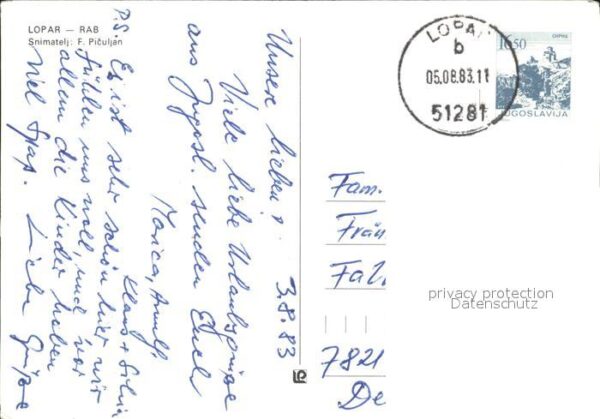 LOPAR — RAB
Snimatelj: F. Pičuljan
3.8.83
Unsere lieben!
Viele liebe Urlaubsgrüße
aus Jugosl. senden Euch
Monica,
Klaus + Silvia
P.S. Es ist sehr schön hier, wir
fühlen uns wohl, und vor
allem die Kinder haben
viel Spaß. Liebe Grüße
LOPAR
b
05.08.83.11
51281
16.50
JUGOSLAVIJA
Fam.
Frän
privacy protection
Datenschutz
7821
De